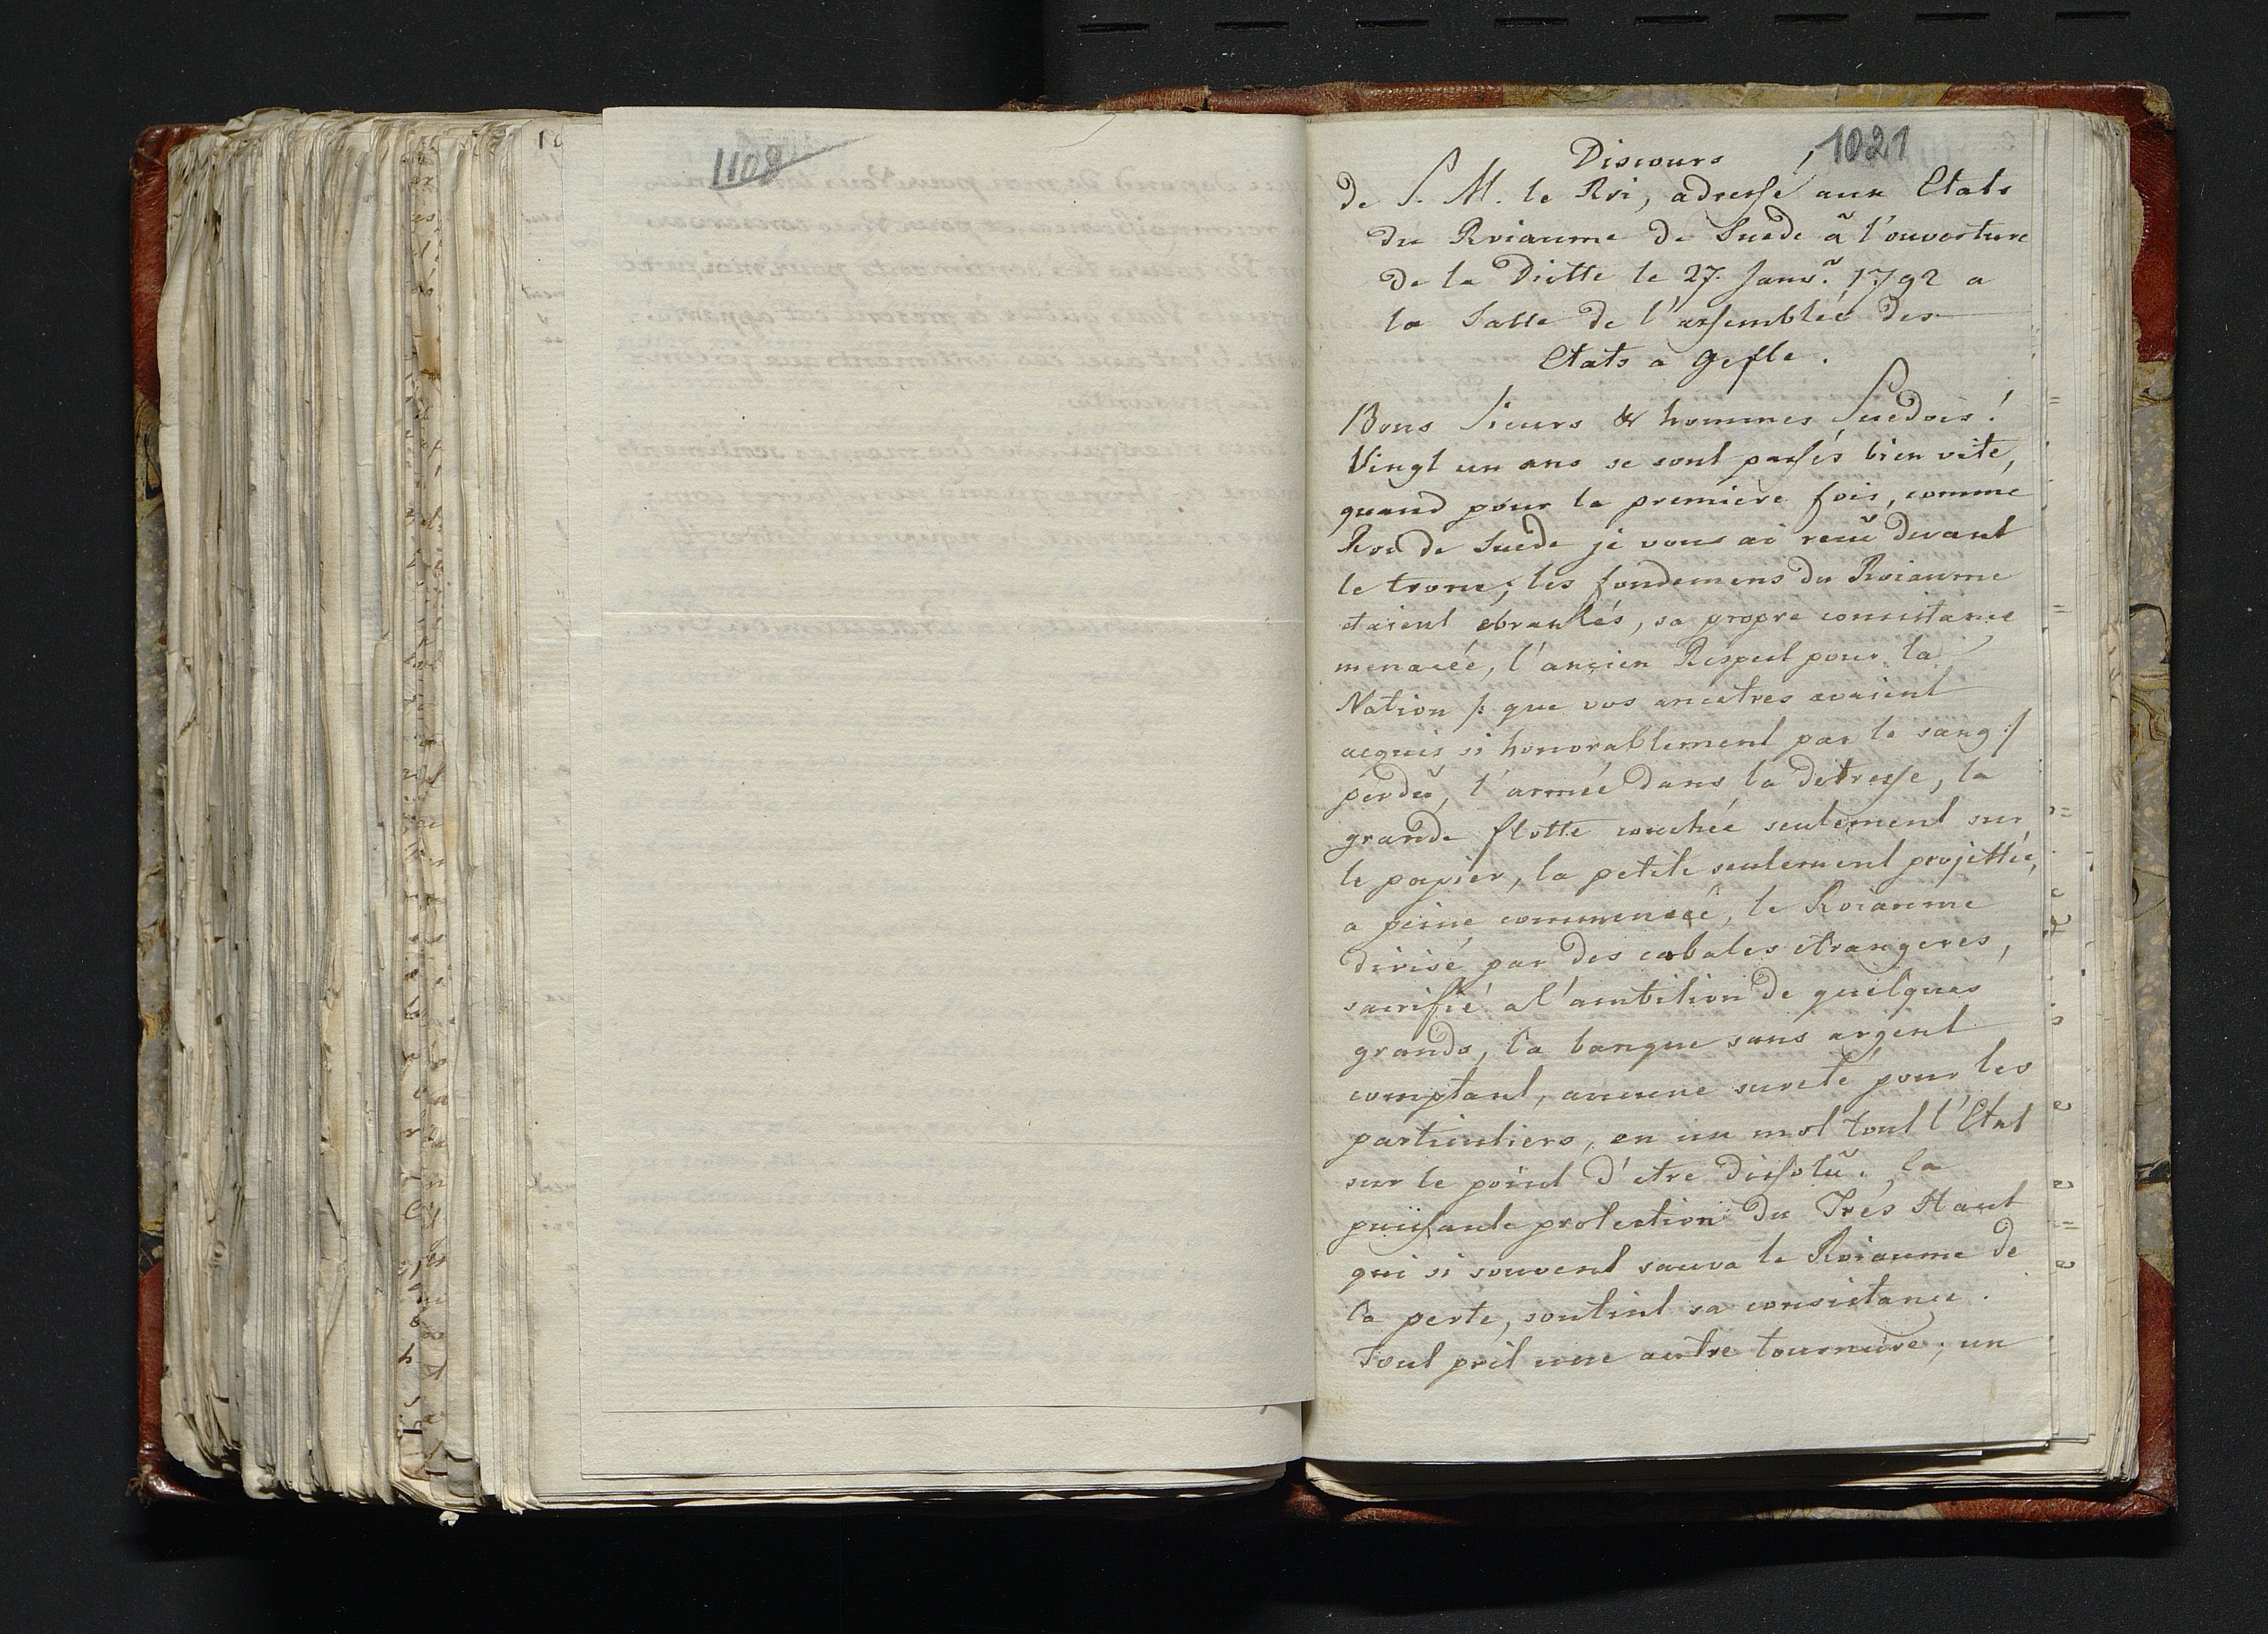 1108
1021
Discours
de S. M. le Roi, adressé aux Etats
du Roiaume de Suede ã l'ouverture
de la Diette le 27. Janv.r 1792 a
la Salle de l'assemblée des
Etats a Gefle.
Bons Sieurs & hommes Suedois!
Vingt un ans se sont passés bien vite,
quand pour la premiere fois, comme
Roi de Suede je vous ai reçŭ devant
le trone; les fondemens du Roiaume
etaient ébranlés, sa propre consistance
menacée, l'ancien Respect pour la
Nation /: que vos ancetres avaient
acquis si honorablement par le sang :/
perdŭ, l'armée dans la detresse, la
grande flotte couchée seulement sur
le papier, la petite seulement projettée,
a peine commencée, le Roiaume
divisé par des cabales etrangeres,
sacrifié a l'ambition de quelques
grands, la banque sans argent
comptant, aucune sureté pour les
particuliers, en un mot tout l'Etat
sur le point d'etre dissolŭ. la
puissante protection du Trés Haut
qui si souvent sauva le Roiaume de
la perte, soutint sa consistance.
Tout prit une autre tournure; un